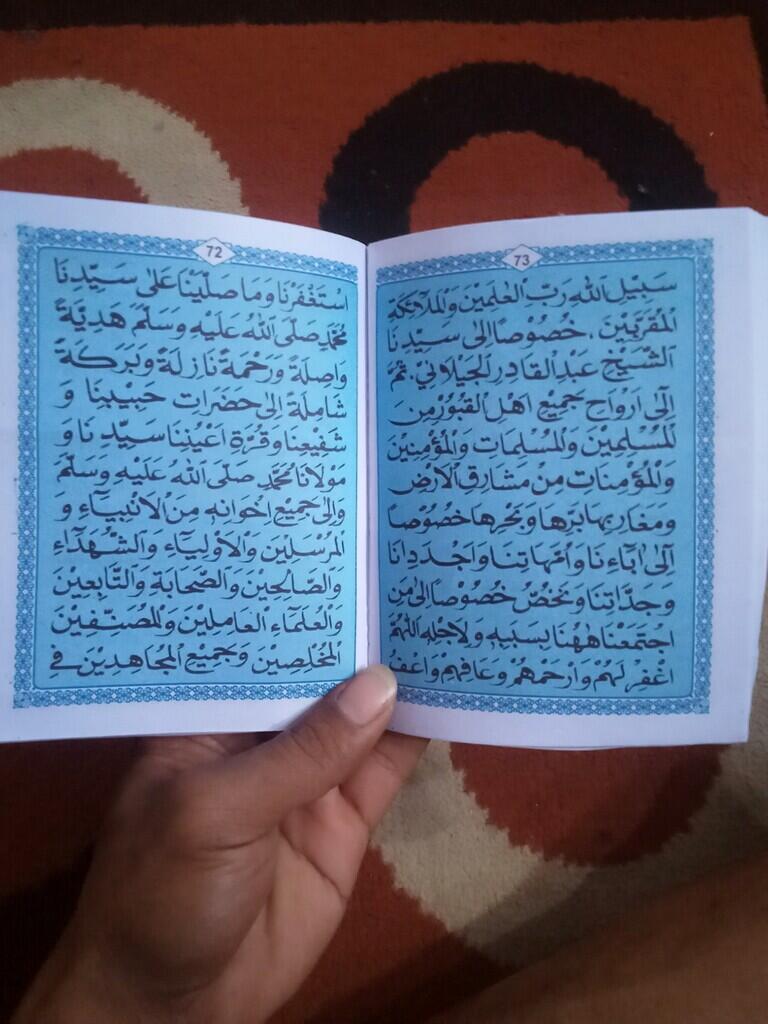 72
اسْتَغْفَرْنَا وَمَا صَلَّيْنَا عَلَى سَيِّدِنَا
مُحَمَّدٍ صَلَّى اللهُ عَلَيْهِ وَسَلَّمَ هَدِيَّةً
وَاصِلَةً وَرَحْمَةً نَازِلَةً وَبَرَكَةً
شَامِلَةً إِلَى حَضَرَاتِ حَبِيْبِنَا وَ
شَفِيْعِنَا وَقُرَّةِ اَعْيُنِنَا سَيِّدِنَا وَ
مَوْلَانَا مُحَمَّدٍ صَلَّى اللهُ عَلَيْهِ وَسَلَّمَ
وَاِلَى جَمِيْعِ اِخْوَانِهِ مِنَ الْاَنْبِيَاءِ وَ
الْمُرْسَلِيْنَ وَالْاَوْلِيَاءِ وَالشُّهَدَاءِ
وَالصَّالِحِيْنَ وَالصَّحَابَةِ وَالتَّابِعِيْنَ
وَالْعُلَمَاءِ الْعَامِلِيْنَ وَالْمُصَنِّفِيْنَ
الْمُخْلِصِيْنَ وَجَمِيْعِ الْمُجَاهِدِيْنَ فِي
73
سَبِيْلِ اللهِ رَبِّ الْعٰلَمِيْنَ وَالْمَلَائِكَةِ
الْمُقَرَّبِيْنَ. خُصُوْصًا اِلَى سَيِّدِنَا
الشَّيْخِ عَبْدِ الْقَادِرِ الْجَيْلَانِيِّ. ثُمَّ
اِلَى اَرْوَاحِ جَمِيْعِ اَهْلِ الْقُبُوْرِ مِنَ
الْمُسْلِمِيْنَ وَالْمُسْلِمَاتِ وَالْمُؤْمِنِيْنَ
وَالْمُؤْمِنَاتِ مِنْ مَشَارِقِ الْاَرْضِ
وَمَغَارِبِهَا بَرِّهَا وَبَحْرِهَا خُصُوْصًا
اِلَى اٰبَاءِنَا وَاُمَّهَاتِنَا وَاَجْدَادِنَا
وَجَدَّاتِنَا وَنَخُصُّ خُصُوْصًا اِلَى مَنِ
اجْتَمَعْنَا هٰهُنَا بِسَبَبِهِ وَلِاَجْلِهِ اَللّٰهُمَّ
اغْفِرْ لَهُمْ وَارْحَمْهُمْ وَعَافِهِمْ وَاعْفُ